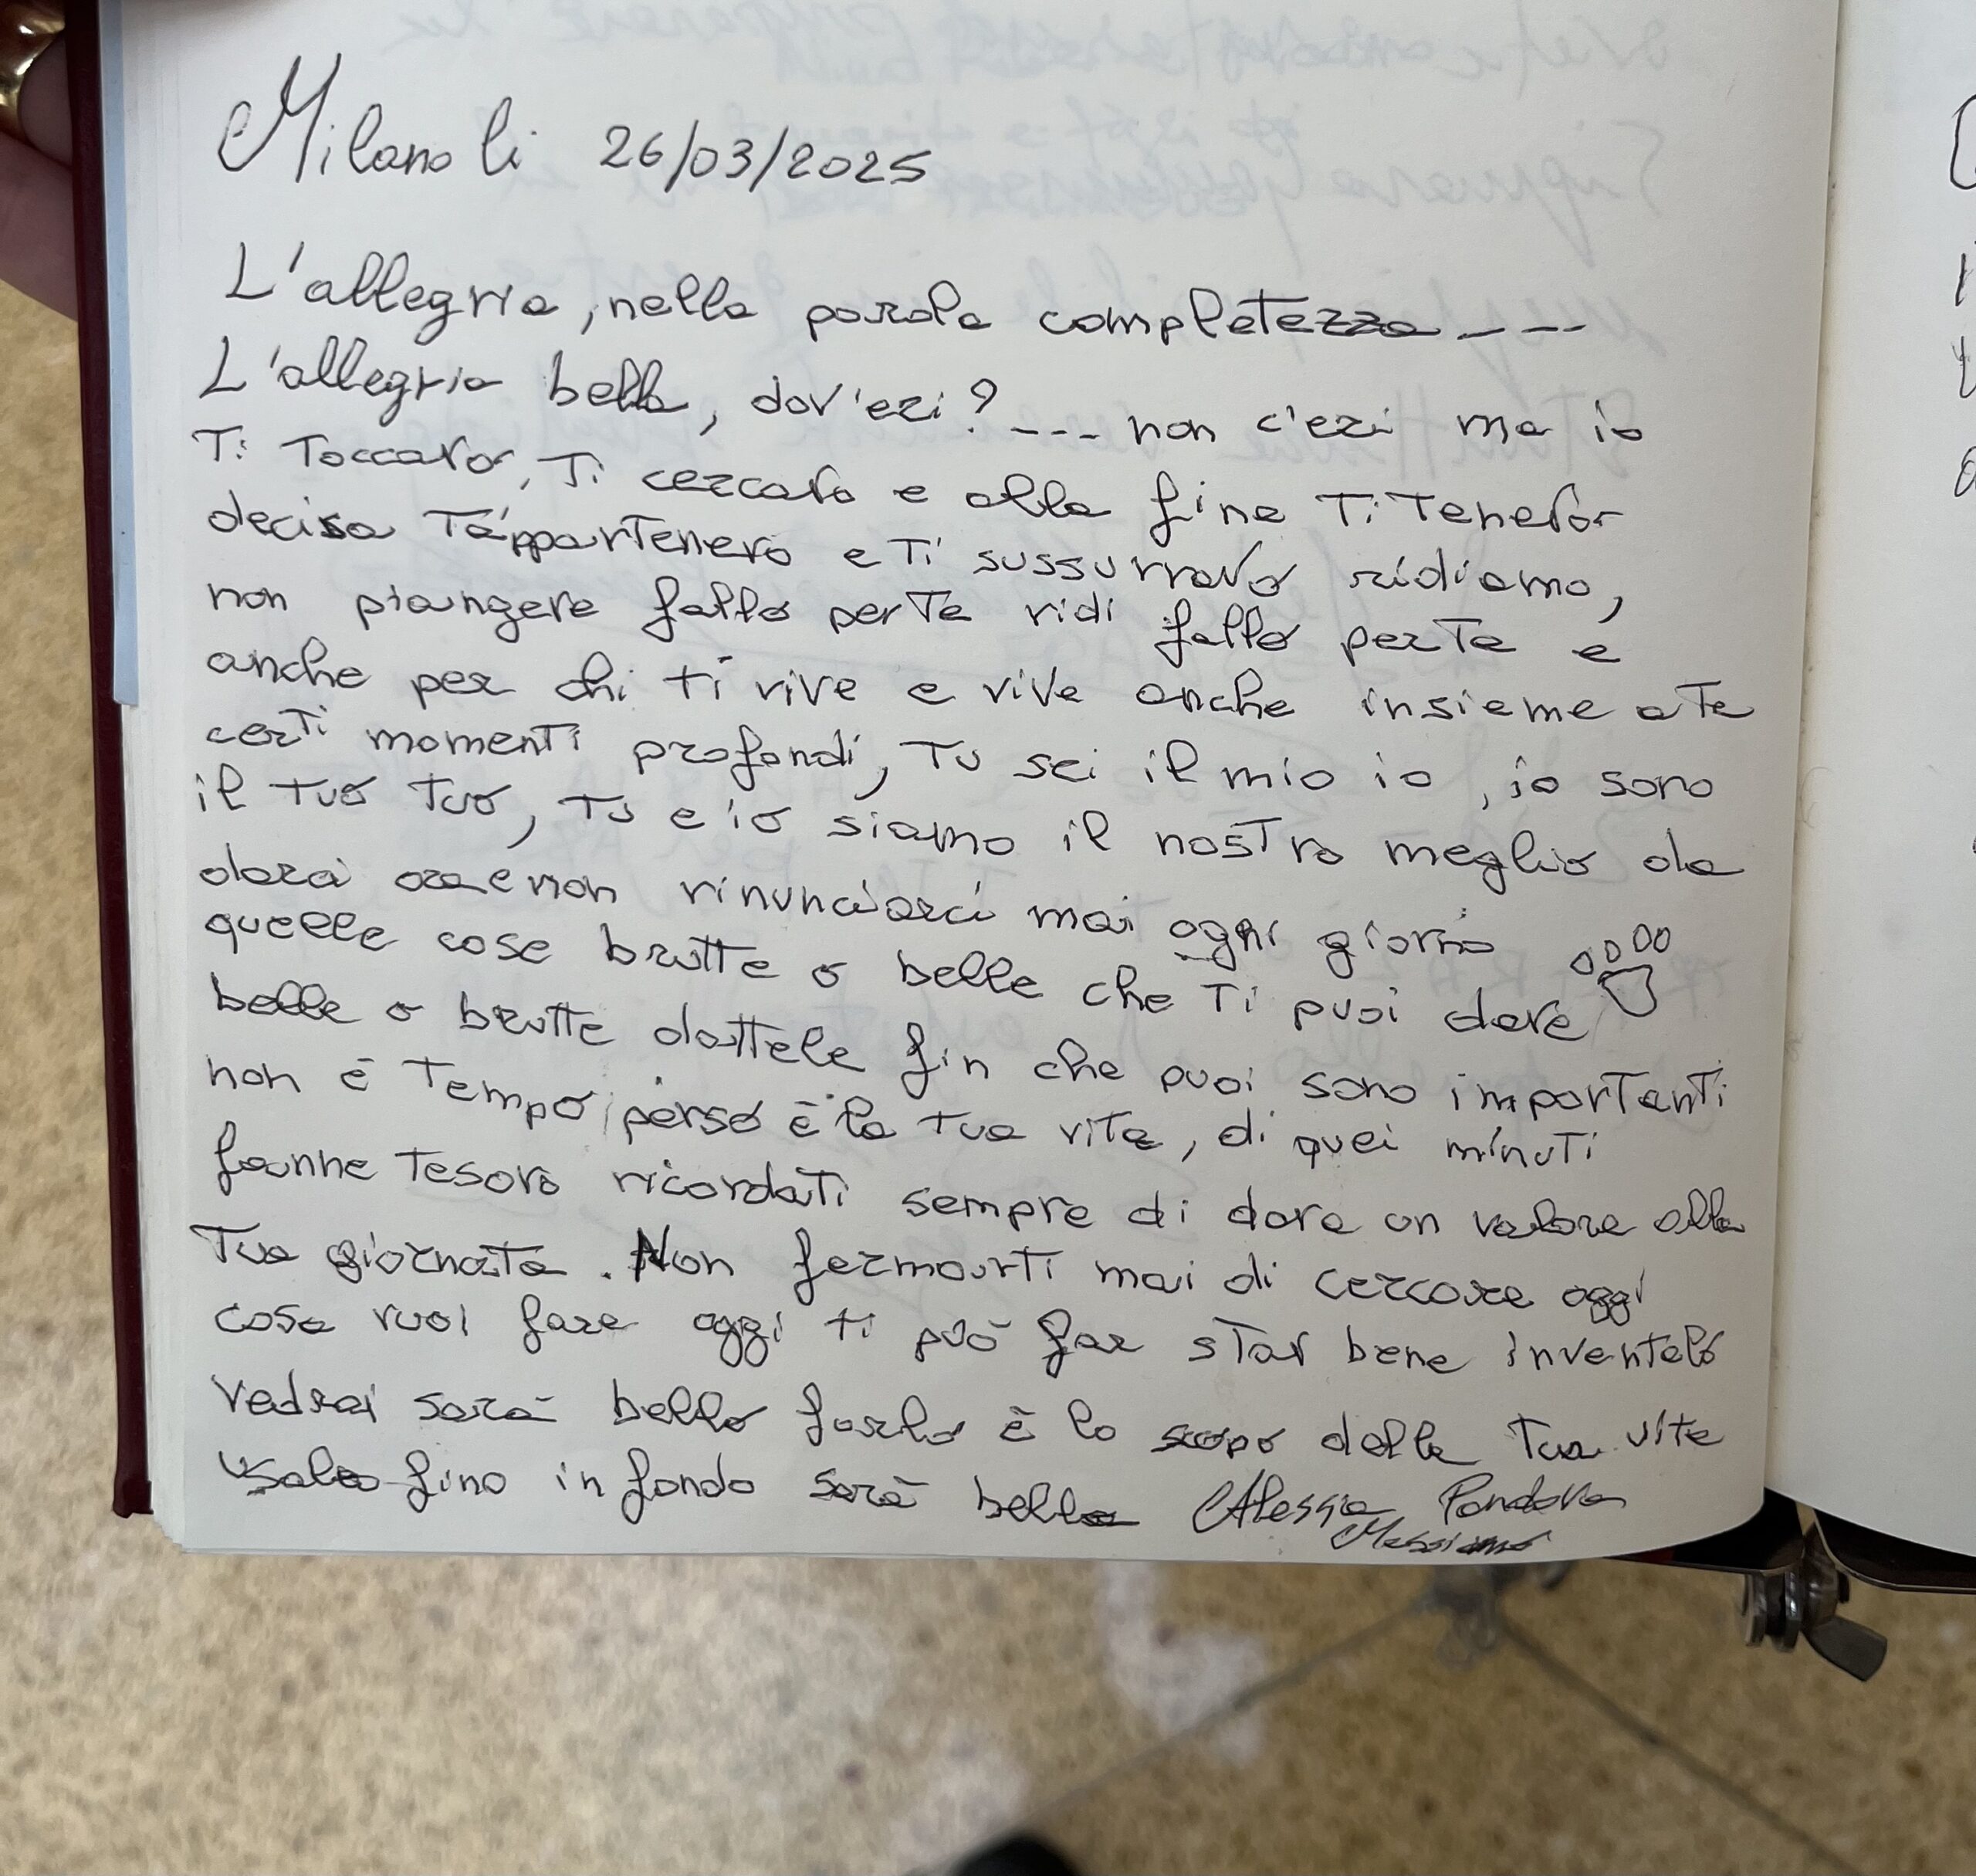 Milano li 26/03/2025
L'allegria, nella parola completezza _ _ _
L'allegria bella, dov'eri? _ _ _ non c'eri ma io
Ti Toccavo, Ti cercavo e alla fine Ti Tenevo
decisa T'appartenevo e Ti sussurravo ridiamo,
non piangere fallo per Te ridi fallo per Te e
anche per chi ti vive e vive anche insieme a Te
certi momenti profondi, Tu sei il mio io, io sono
il tuo tuo, tu e io siamo il nostro meglio da
darci ora e non rinunciarci mai ogni giorno
quelle cose brutte o belle che Ti puoi dare
belle o brutte dattele fin che puoi sono importanti
non è Tempo perso è la tua vita, di quei minuti
fanne Tesoro ricordati sempre di dare un valore alla
Tua giornata. Non fermarti mai di cercare oggi
cosa vuoi fare oggi ti può far star bene inventalo
vedrai sarà bello farlo è lo scopo della Tua vita
fino in fondo sarà bella Alessia Pandora